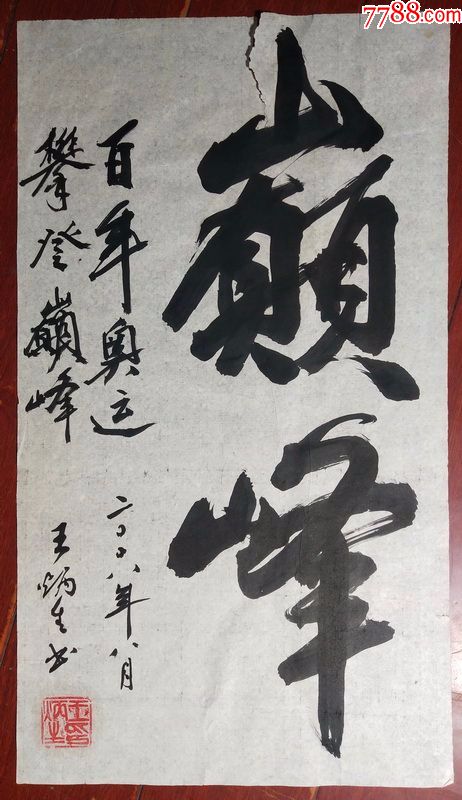 7788.com
巅峰
百年奥运
二〇〇八年八月
攀登巅峰
王炳生书